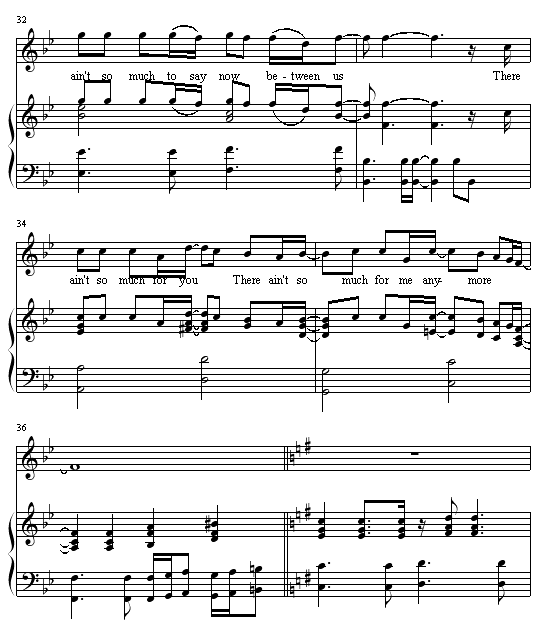 32
ain't so much to say now be - tween us There
34
ain't so much for you There ain't so much for me any- more
36